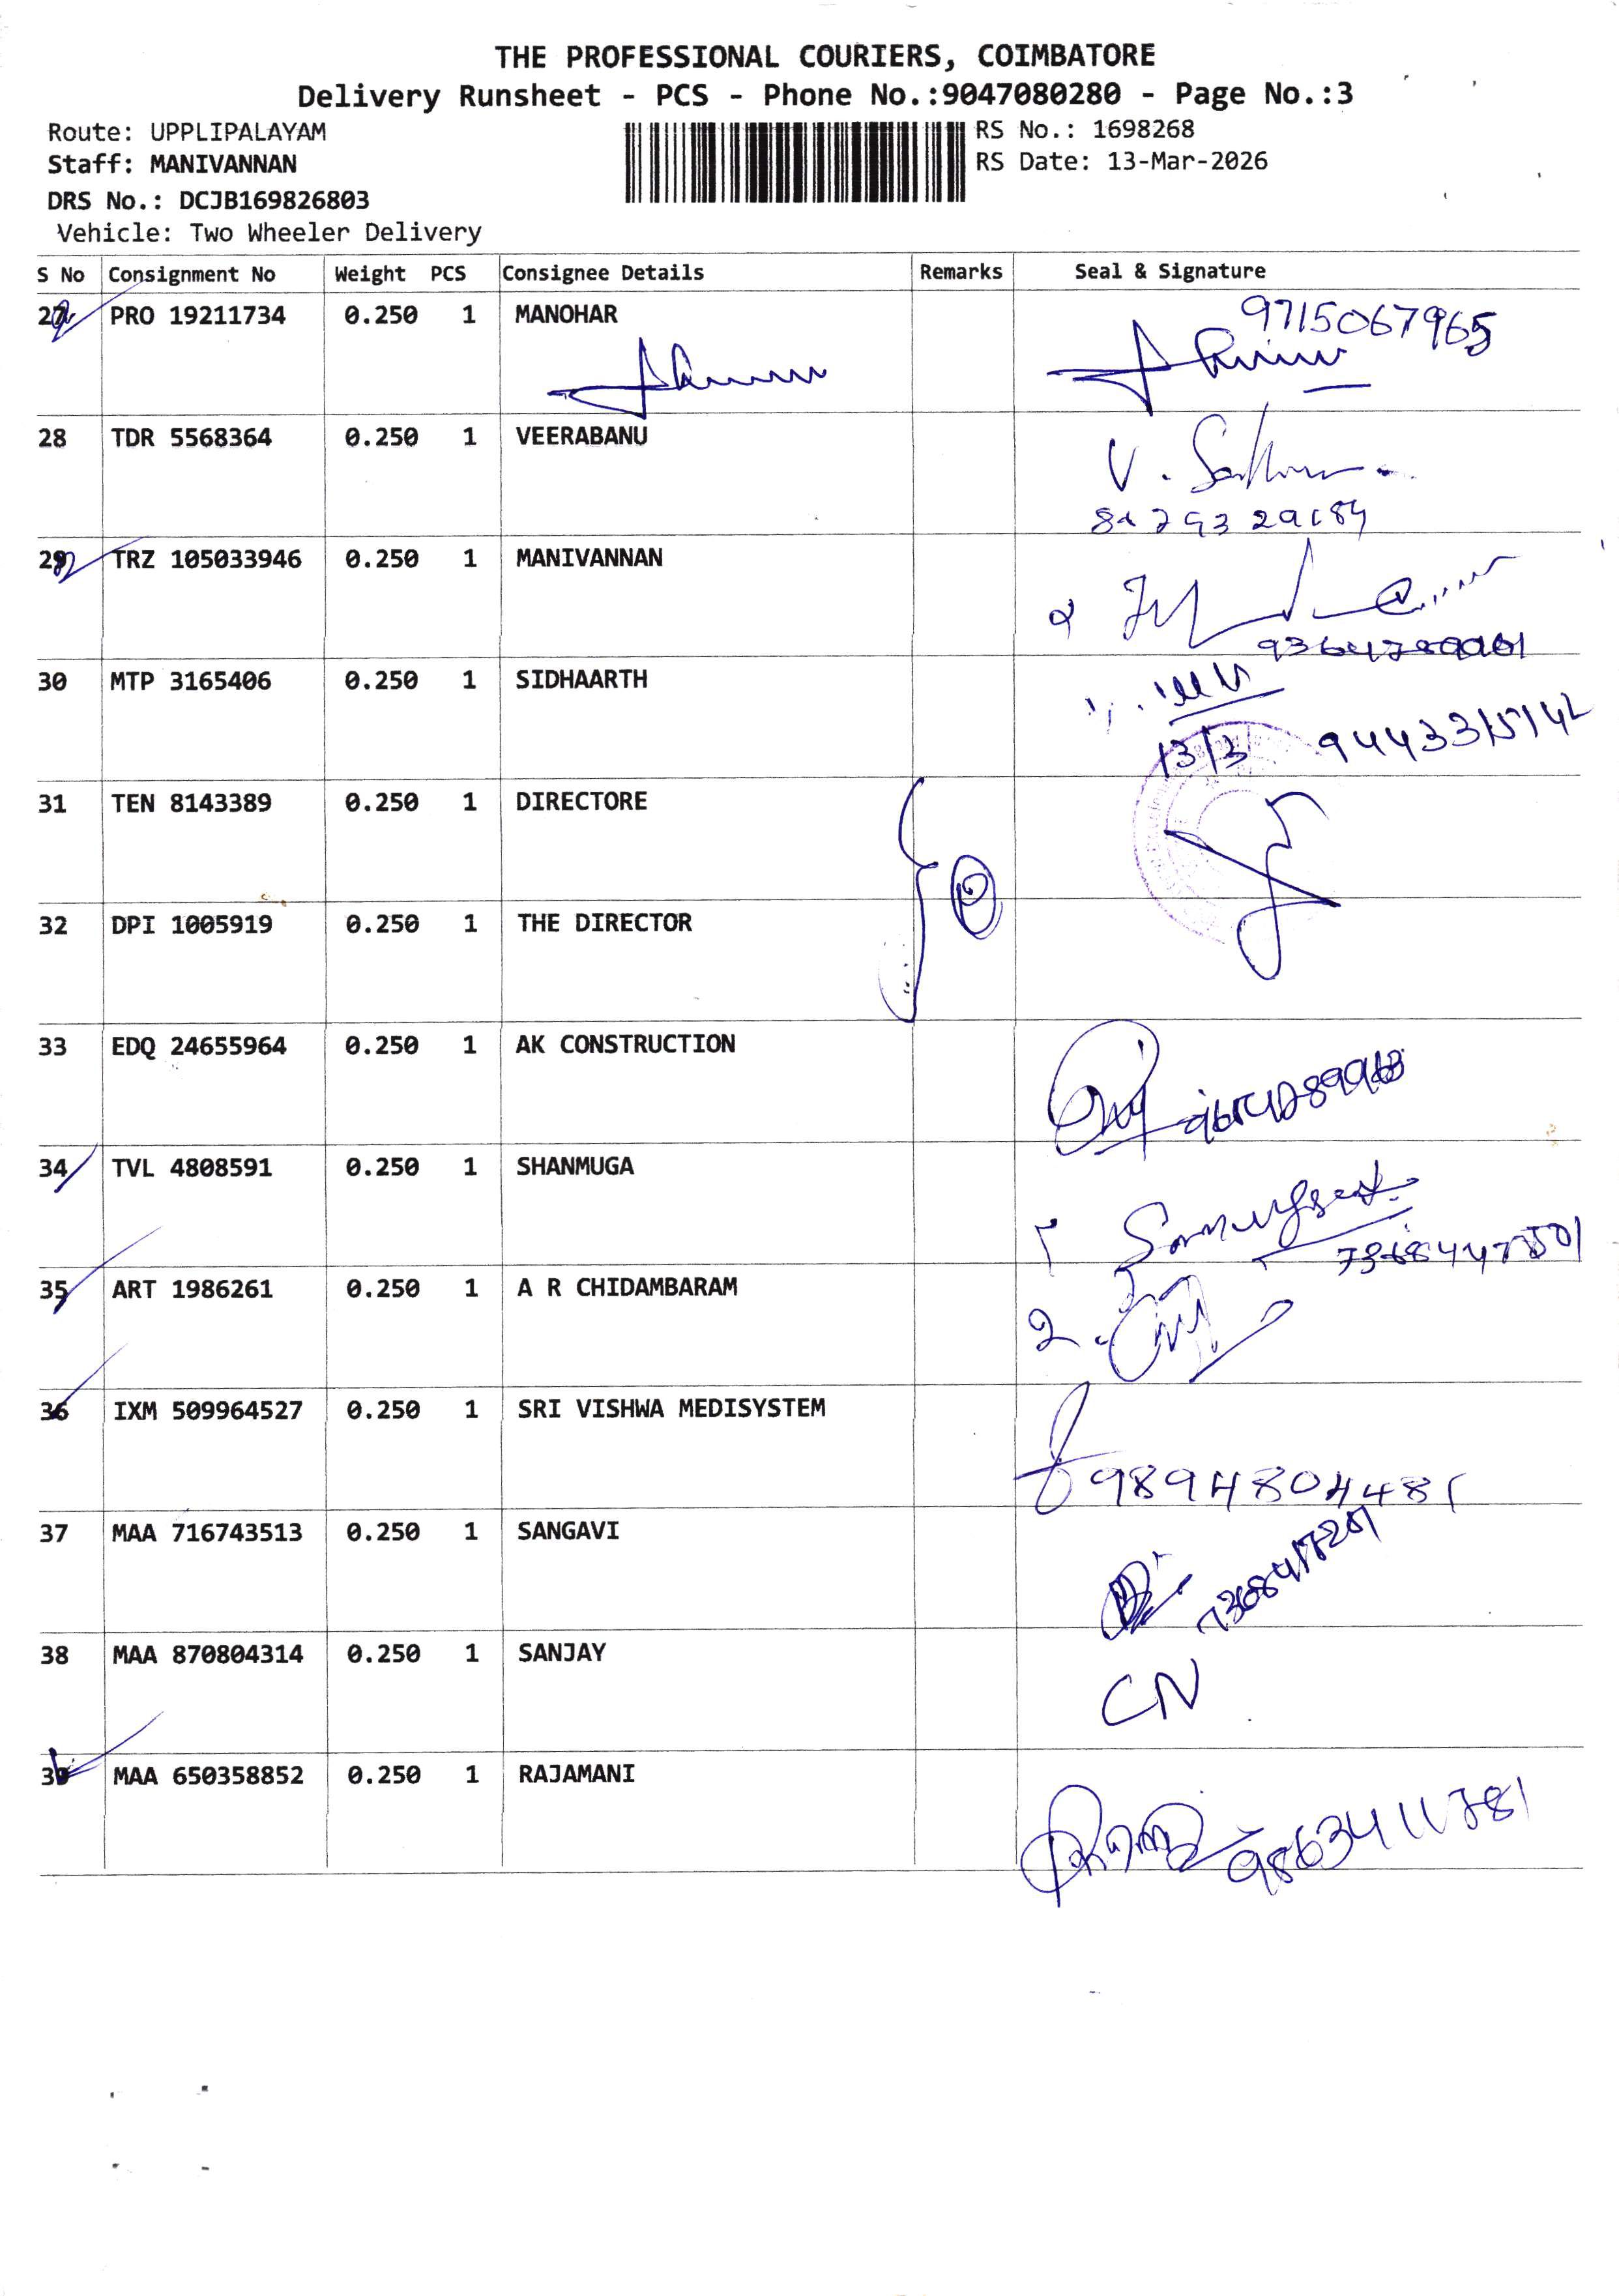 THE PROFESSIONAL COURIERS, COIMBATORE
Delivery Runsheet - PCS - Phone No.:9047080280 - Page No.:3
Route: UPPLIPALAYAM
RS No.: 1698268
Staff: MANIVANNAN
RS Date: 13-Mar-2026
DRS No.: DCJB169826803
Vehicle: Two Wheeler Delivery
S No Consignment No Weight PCS Consignee Details Remarks Seal & Signature
27 PRO 19211734 0.250 1 MANOHAR 9715067965
28 TDR 5568364 0.250 1 VEERABANU
V.
29 TRZ 105033946 0.250 1 MANIVANNAN
30 MTP 3165406 0.250 1 SIDHAARTH
13/3 9443315142
31 TEN 8143389 0.250 1 DIRECTORE
32 DPI 1005919 0.250 1 THE DIRECTOR
33 EDQ 24655964 0.250 1 AK CONSTRUCTION
34 TVL 4808591 0.250 1 SHANMUGA
35 ART 1986261 0.250 1 A R CHIDAMBARAM
2.
36 IXM 509964527 0.250 1 SRI VISHWA MEDISYSTEM
9894804481
37 MAA 716743513 0.250 1 SANGAVI
38 MAA 870804314 0.250 1 SANJAY
CN
39 MAA 650358852 0.250 1 RAJAMANI
9863411781